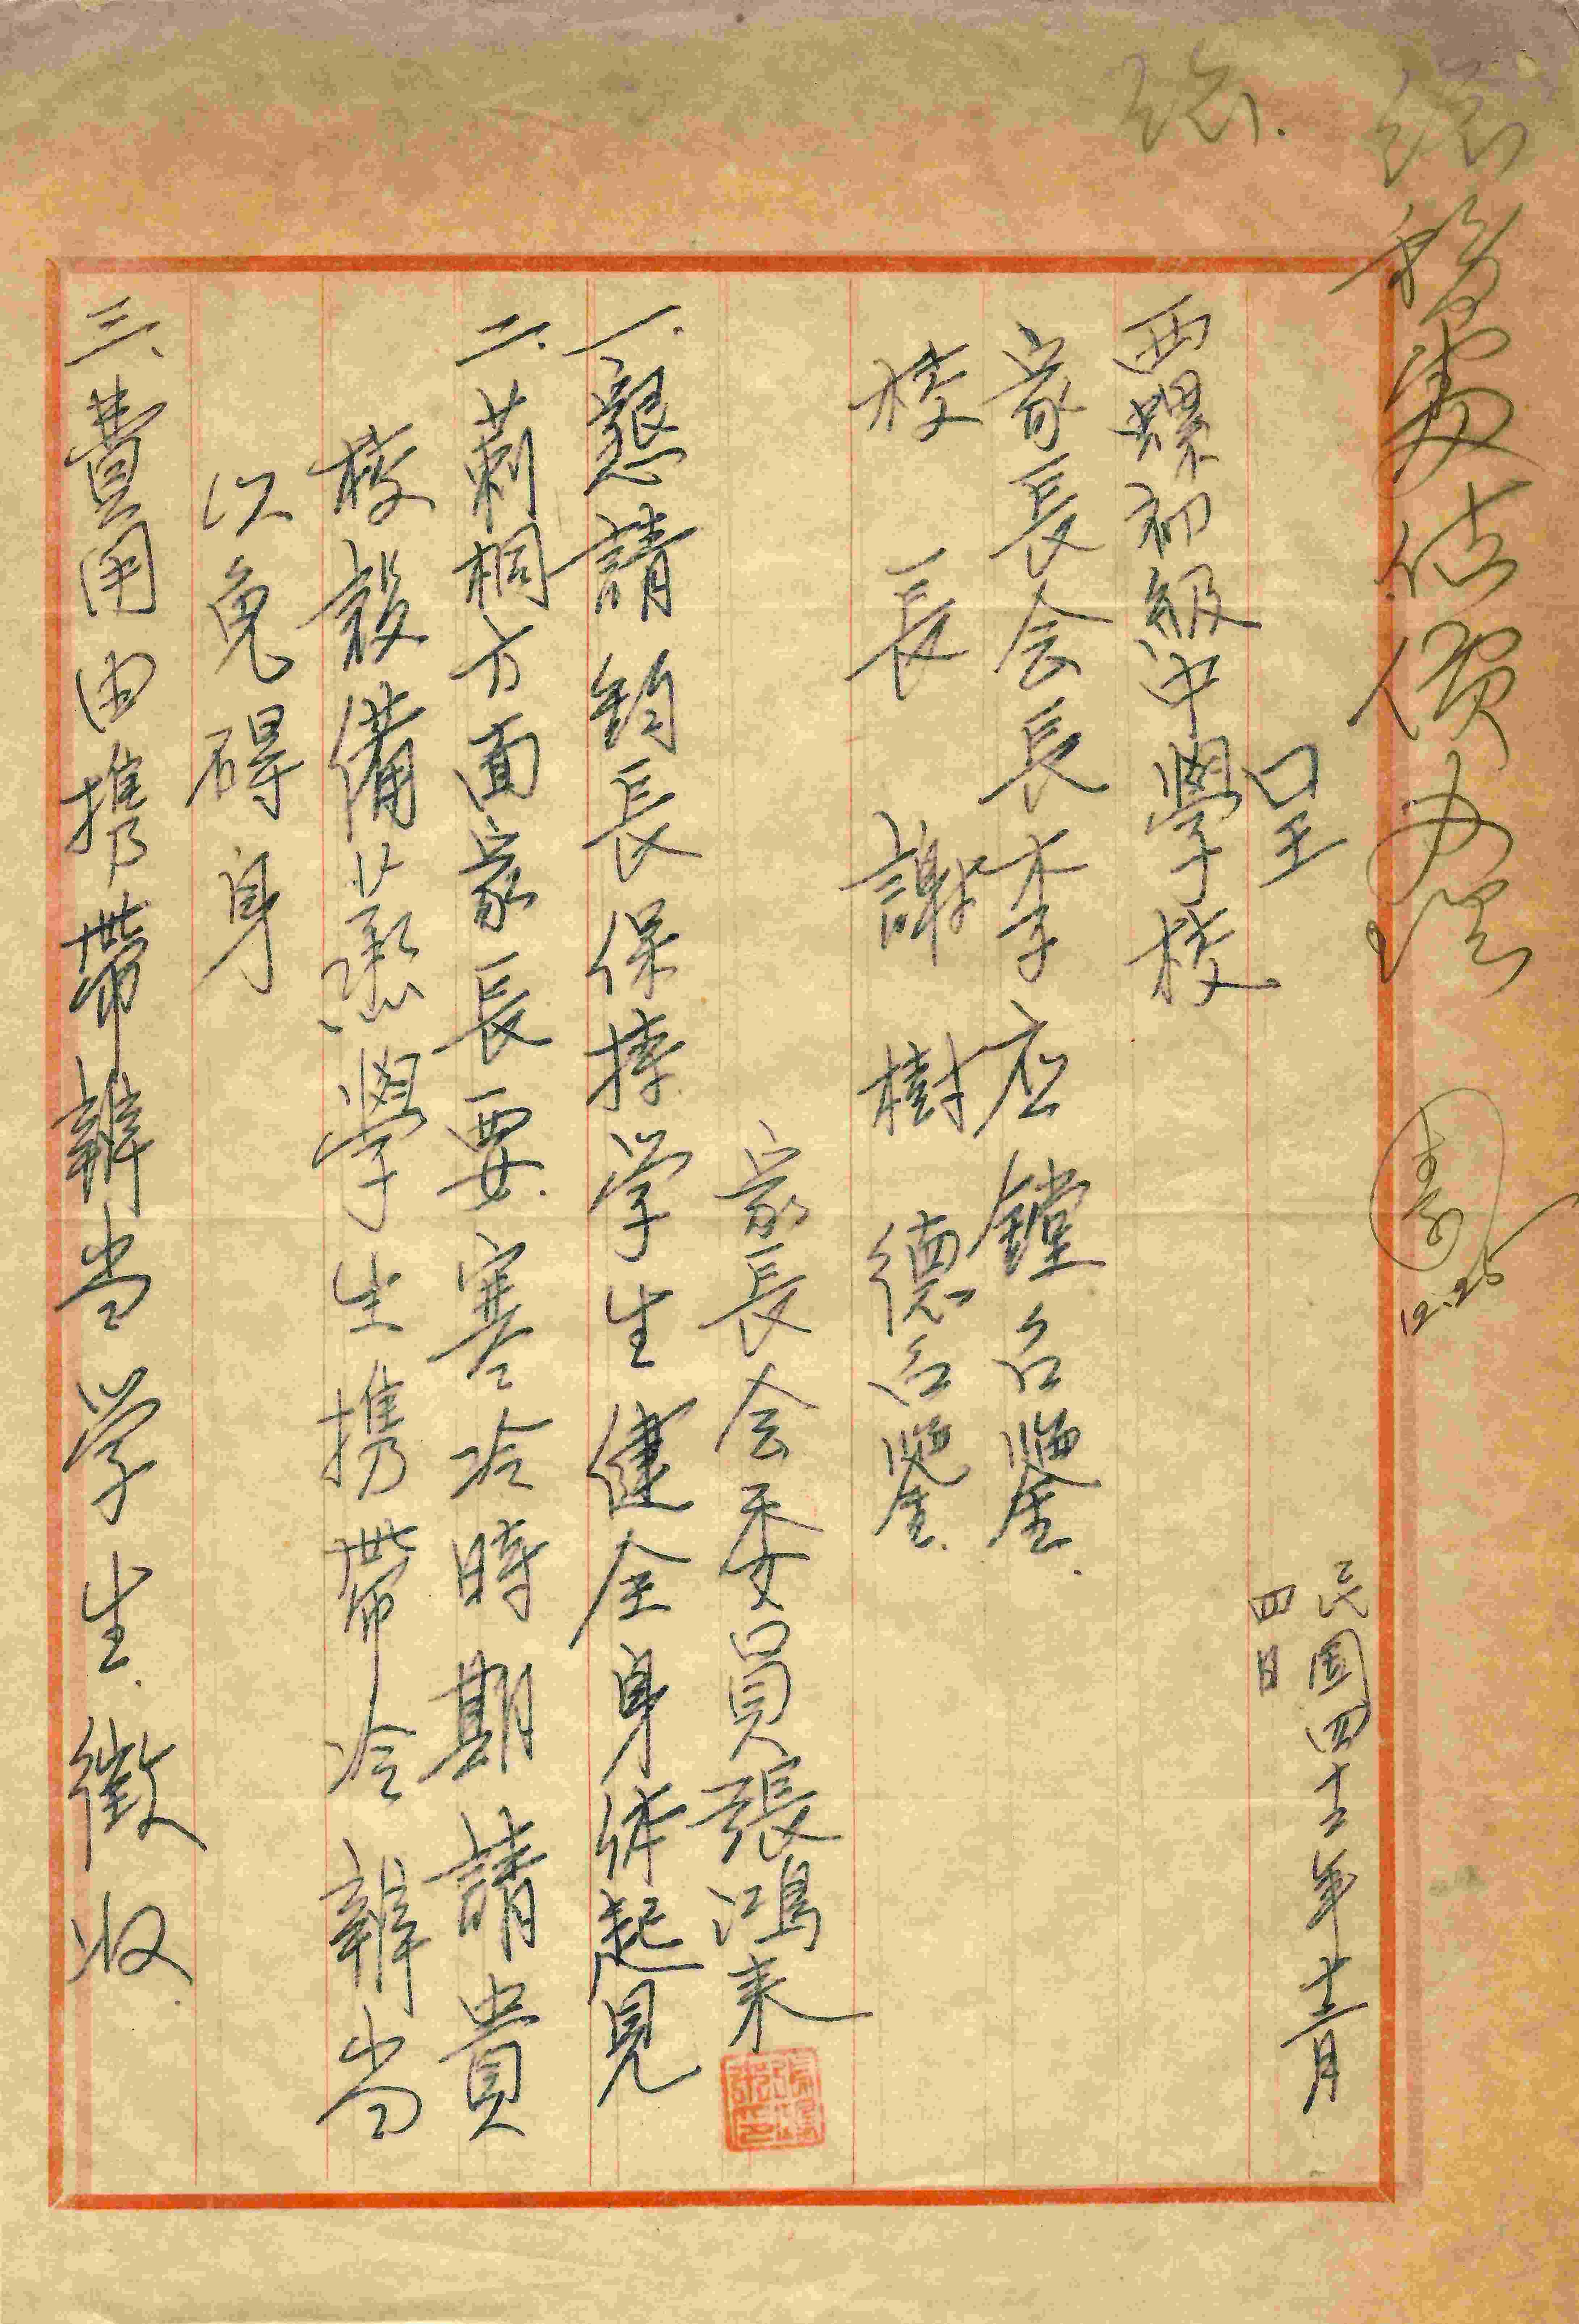 總務處估價办理
12.25
民國四十三年十二月
四日
呈
西螺初級中學校
家長会長李应鏜台鑒.
校長 謝樹德台鑒.
家長会委員張鴻来
一.懇請 鈞長保持学生健全身体起見
二.莿桐方面家長要.寒冷時期請貴
校設備蒸學生携帶冷辨当
以免碍身
三、費用由携帶辨当学生.徵收.